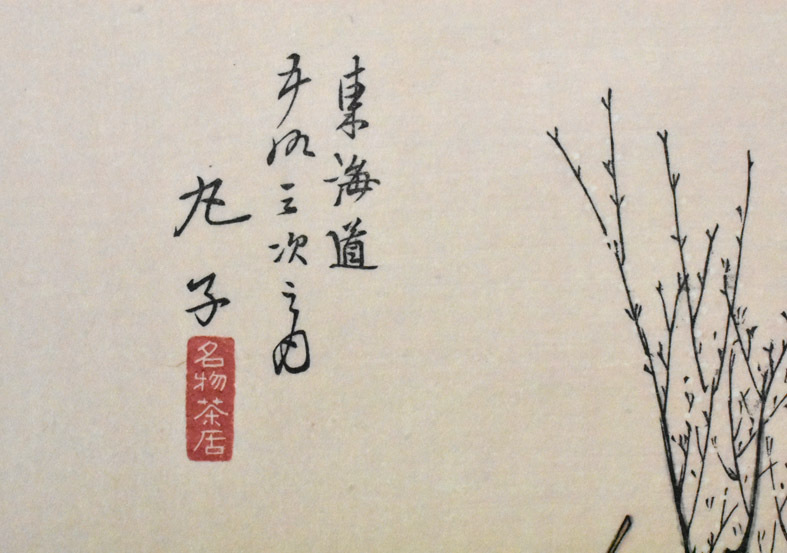 東海道
五拾三次之内
丸子
名物茶店